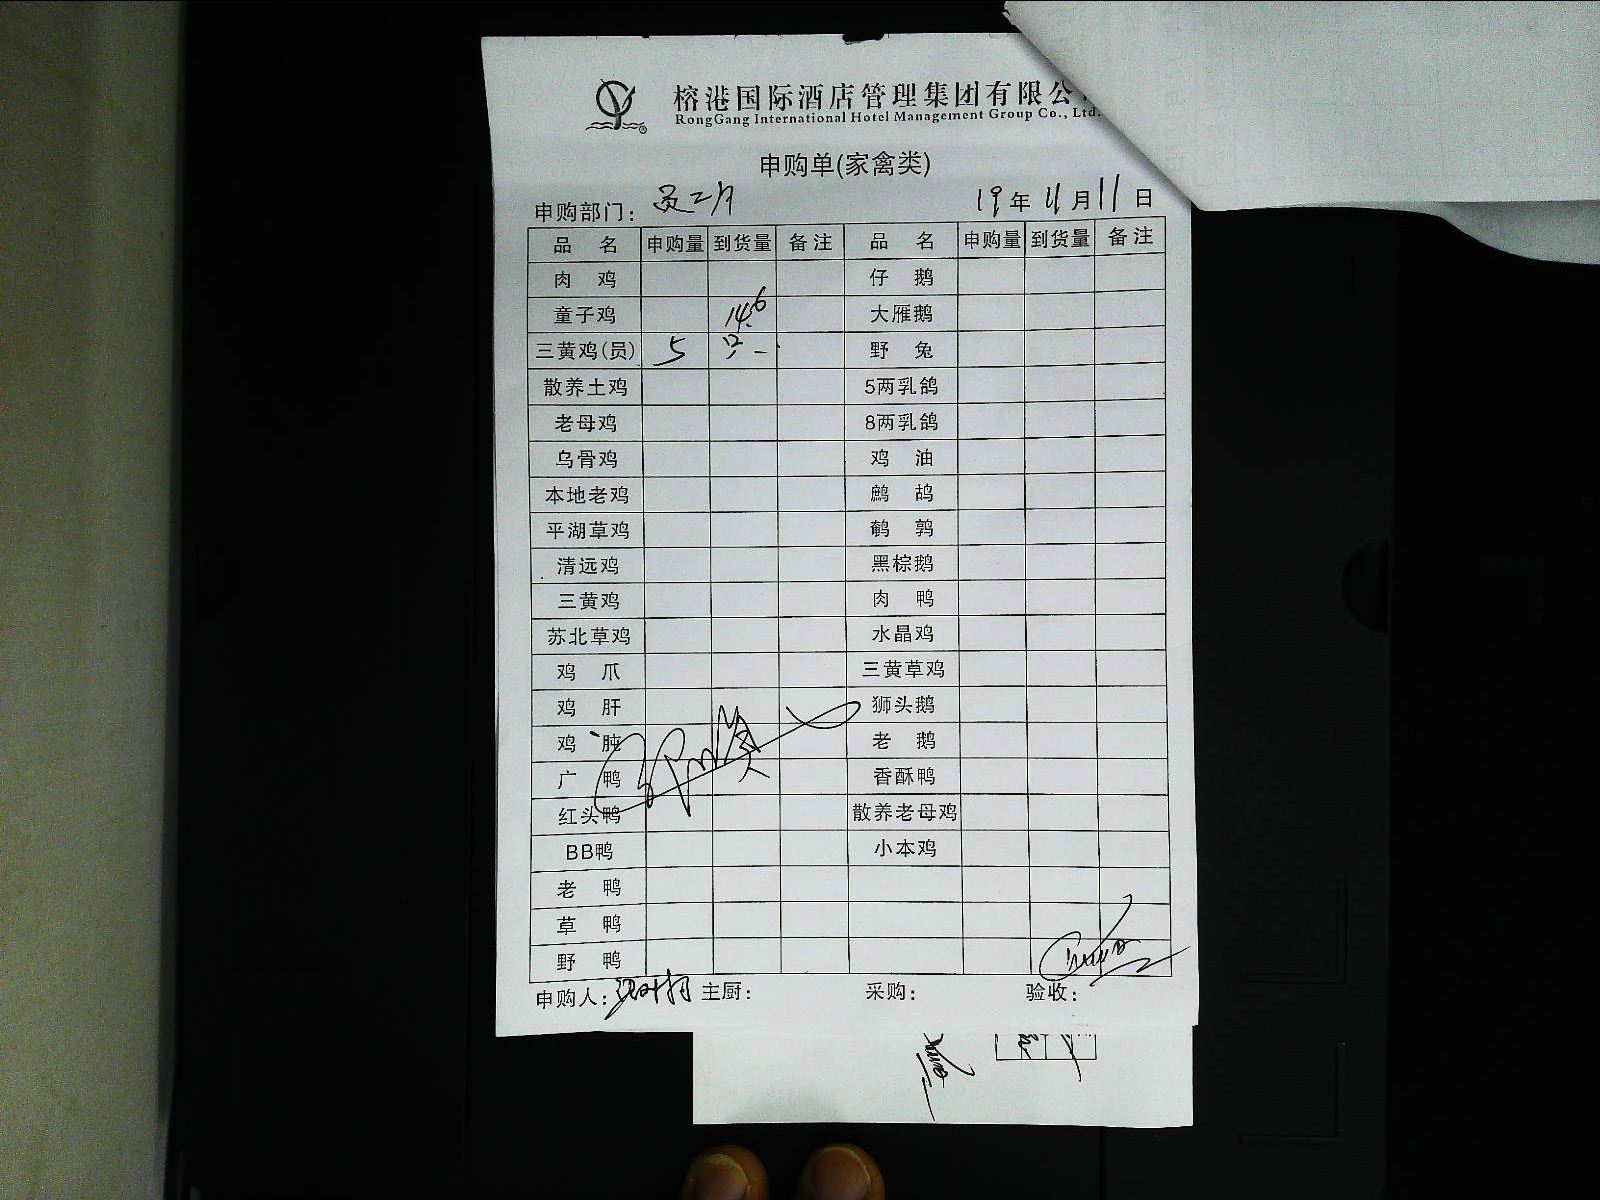 榕港国际酒店管理集团有限公
RongGang International Hotel Management Group Co., Ltd.
申购单(家禽类)
申购部门: 员工 19年11月11日
品 名 申购量 到货量 备注 品 名 申购量 到货量 备注
肉 鸡 仔 鹅
童子鸡 14.6 大雁鹅
三黄鸡(员) 5 野 兔
散养土鸡 5两乳鸽
老母鸡 8两乳鸽
乌骨鸡 鸡 油
本地老鸡 鹧 鸪
平湖草鸡 鹌 鹑
清远鸡 黑棕鹅
三黄鸡 肉 鸭
苏北草鸡 水晶鸡
鸡 爪 三黄草鸡
鸡 肝 狮头鹅
鸡 肫 老 鹅
广 鸭 香酥鸭
红头鸭 散养老母鸡
BB鸭 小本鸡
老 鸭
草 鸭
野 鸭
申购人: 主厨: 采购: 验收: